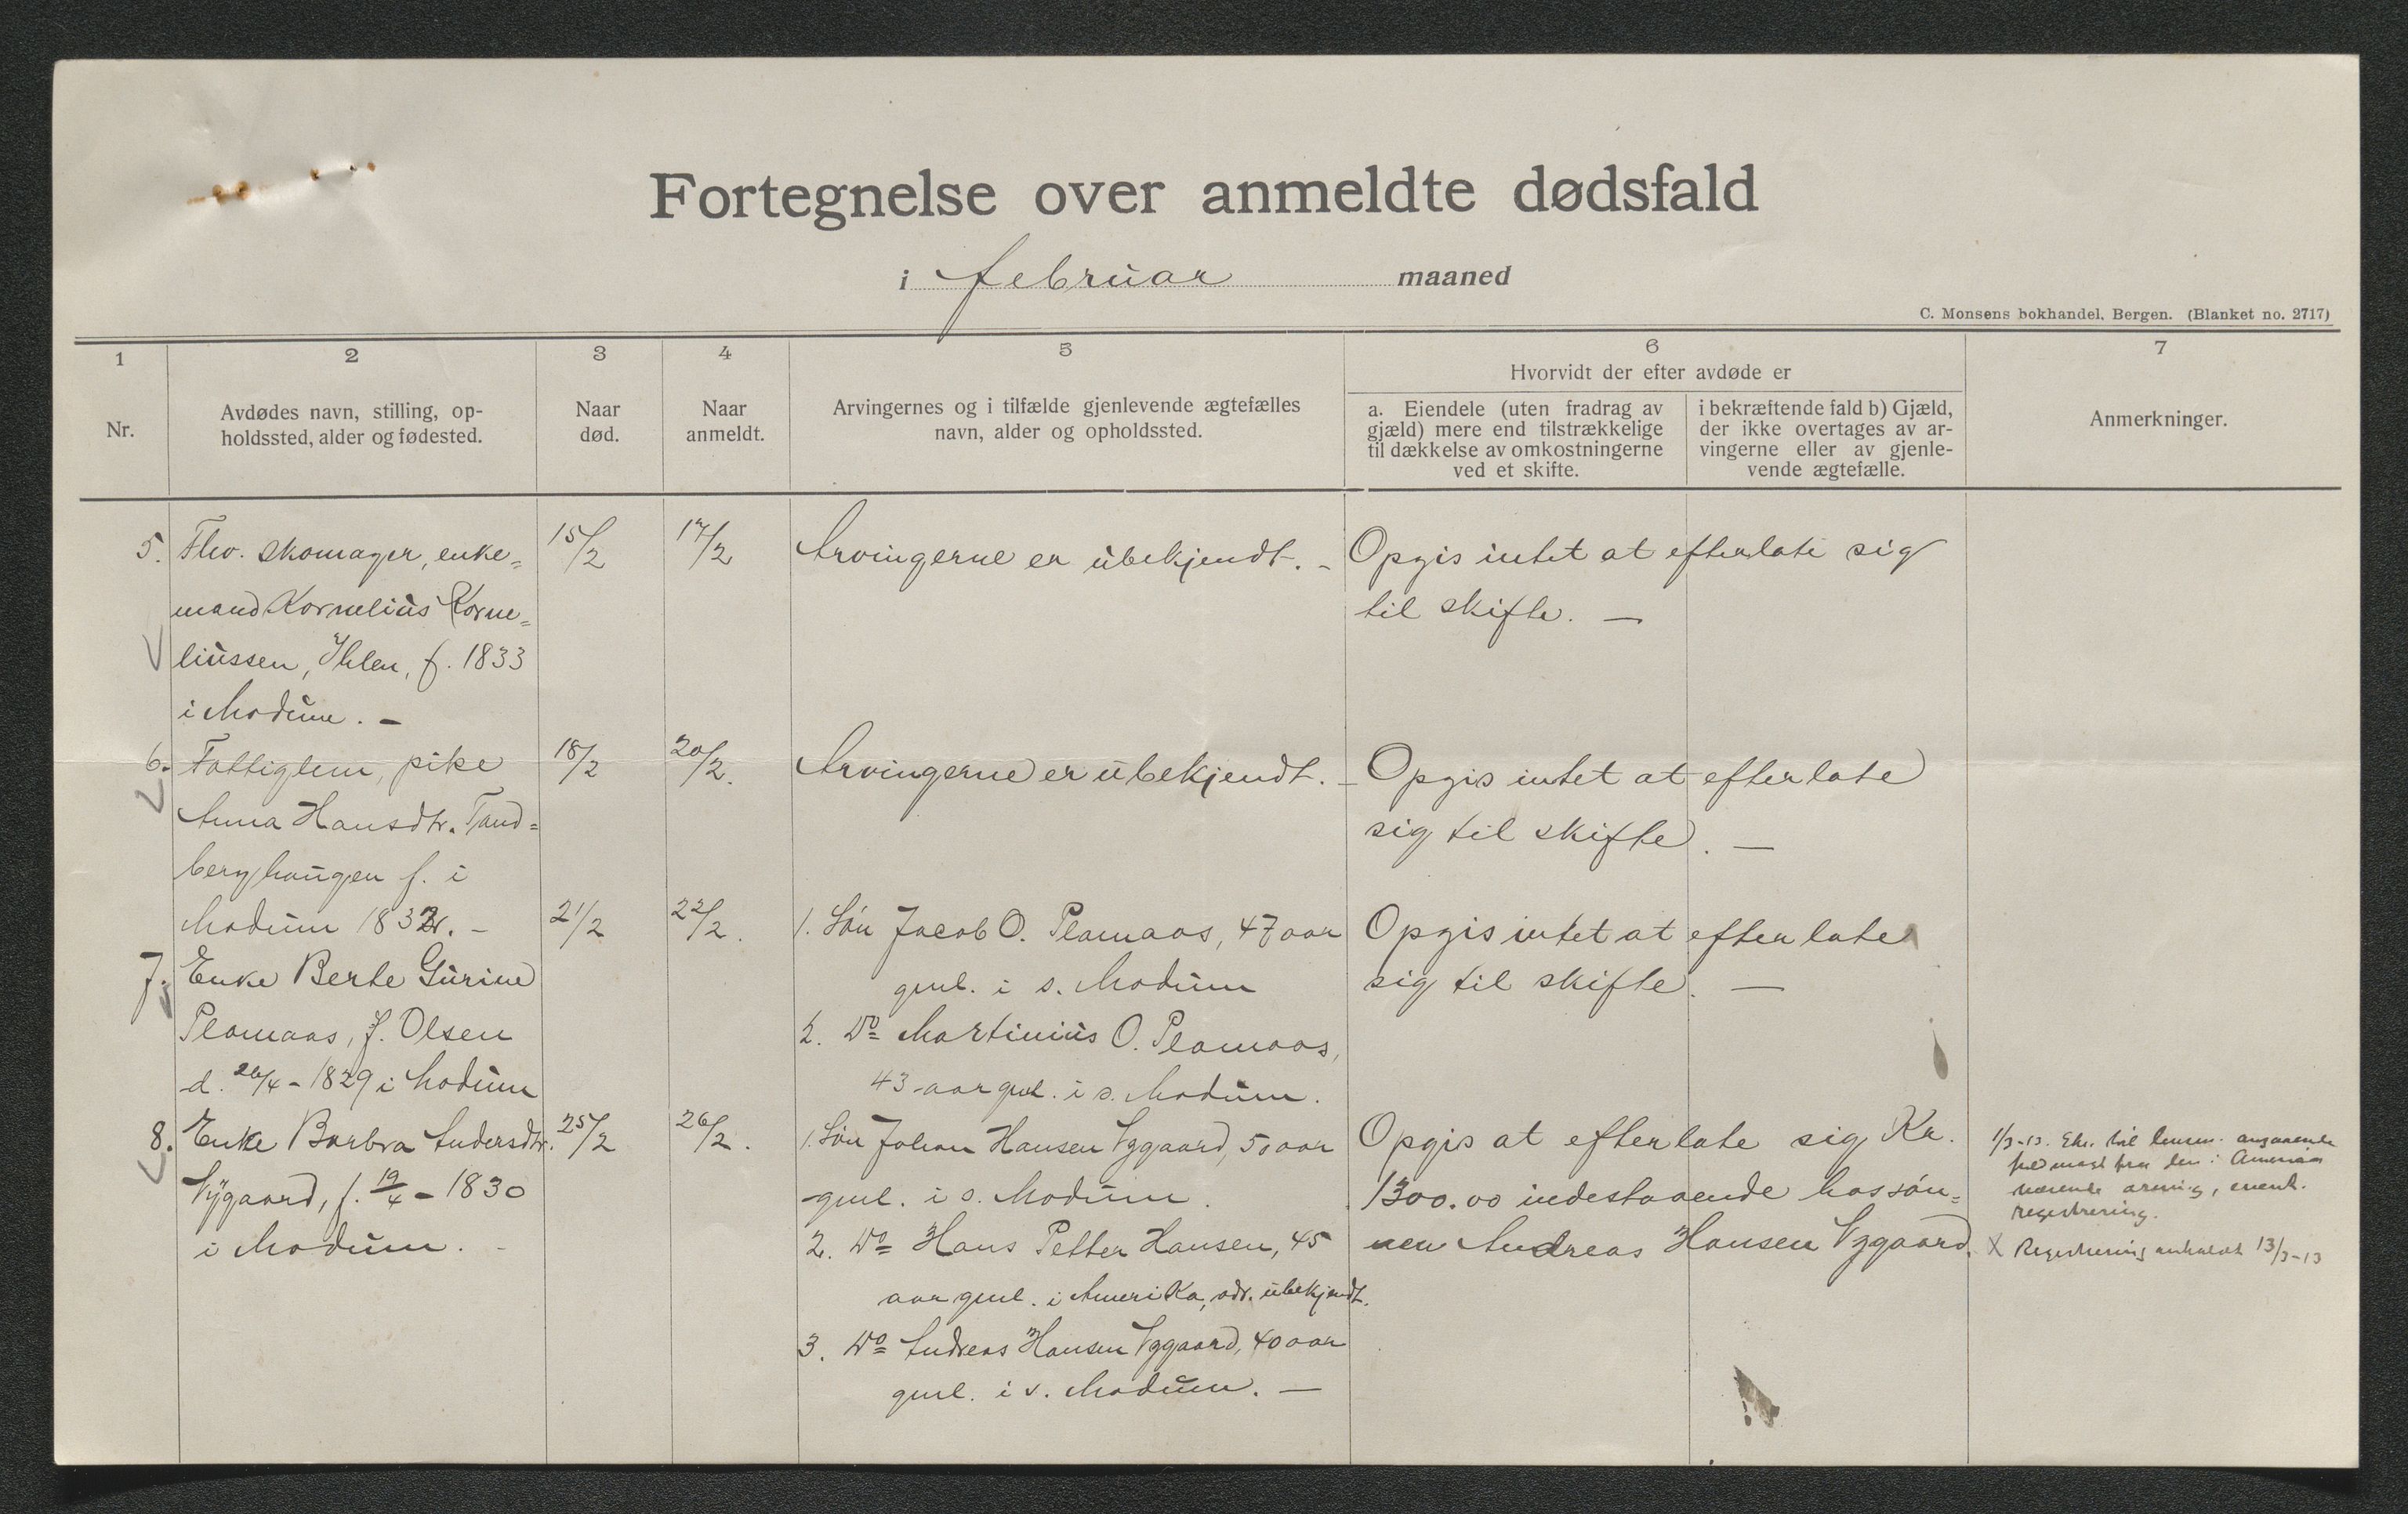 Fortegnelse over anmeldte dødsfald
i februar maaned
C. Monsens bokhandel, Bergen. (Blanket no. 2717)
1
2
3
4
5
6
7
Nr.
Avdødes navn, stilling, op-
holdssted, alder og fødested.
Naar
død.
Naar
anmeldt.
Arvingernes og i tilfælde gjenlevende ægtefælles
navn, alder og opholdssted.
Hvorvidt der efter avdøde er
a. Eiendele (uten fradrag av
gjæld) mere end tilstrækkelige
til dækkelse av omkostningerne
ved et skifte.
i bekræftende fald b) Gjæld,
der ikke overtages av ar-
vingerne eller av gjenle-
vende ægtefælle.
Anmerkninger.
5. Fhv. skomager, enke=
mand Kornelius Korne=
liussen, Ihlen, f. 1833
i Modum. -
15/2
17/2
Arvingerne er ubekjendt. -
Opgis intet at efterlate sig
til skifte. -
6. Fattiglem, pike
Anna Hansdtr. Tand=
berghaugen f. i
Modum 1832. -
18/2
20/2.
Arvingerne er ubekjendt. -
Opgis intet at efterlate
sig til skifte. -
7. Enke Berte Gurine
Plomaas, f. Olsen
d. 26/4 - 1829 i Modum
21/2
22/2.
1. Søn Jacob O. Plomaas, 47 aar
gml. i s. Modum
2. Do Martinius O. Plomaas,
43 aar gml. i s. Modum.
Opgis intet at efterlate
sig til skifte. -
8. Enke Barbra Andersdtr.
Vygaard, f. 19/4 - 1830
i Modum. -
25/2
26/2.
1. Søn Johan Hansen Vygaard, 50 aar
gml. i s. Modum.
2. Do Hans Petter Hansen, 45
aar gml. i Amerika, adr. ubekjendt.
3. Do Andreas Hansen Vygaard, 40 aar
gml. i s. Modum. -
Opgis at efterlate sig Kr.
1300.00 indestaaende hos søn=
nen Andreas Hansen Vygaard.
1/3-13. til lensm. angaaende
fra den i Amerika
værende arving, event.
registrering.
X Registrering 13/3-13